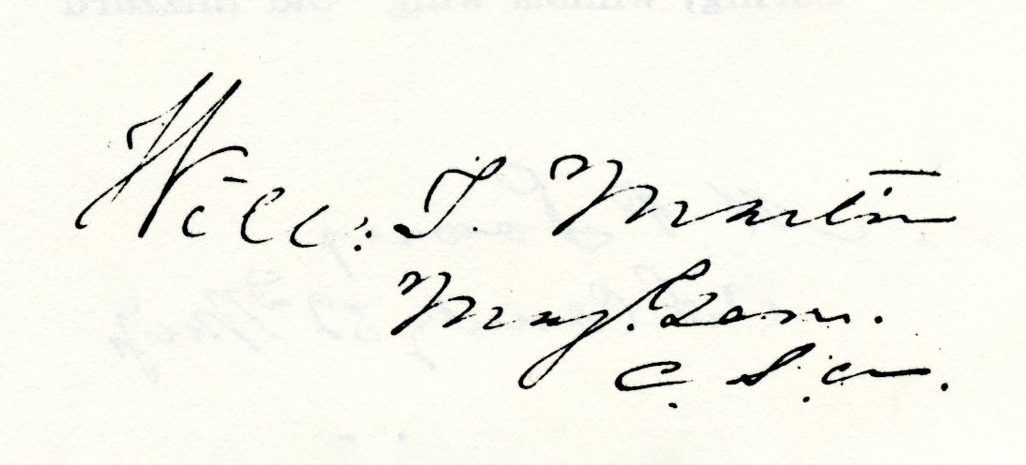 Will: T. Martin
Maj. Gen.
C. S. A.